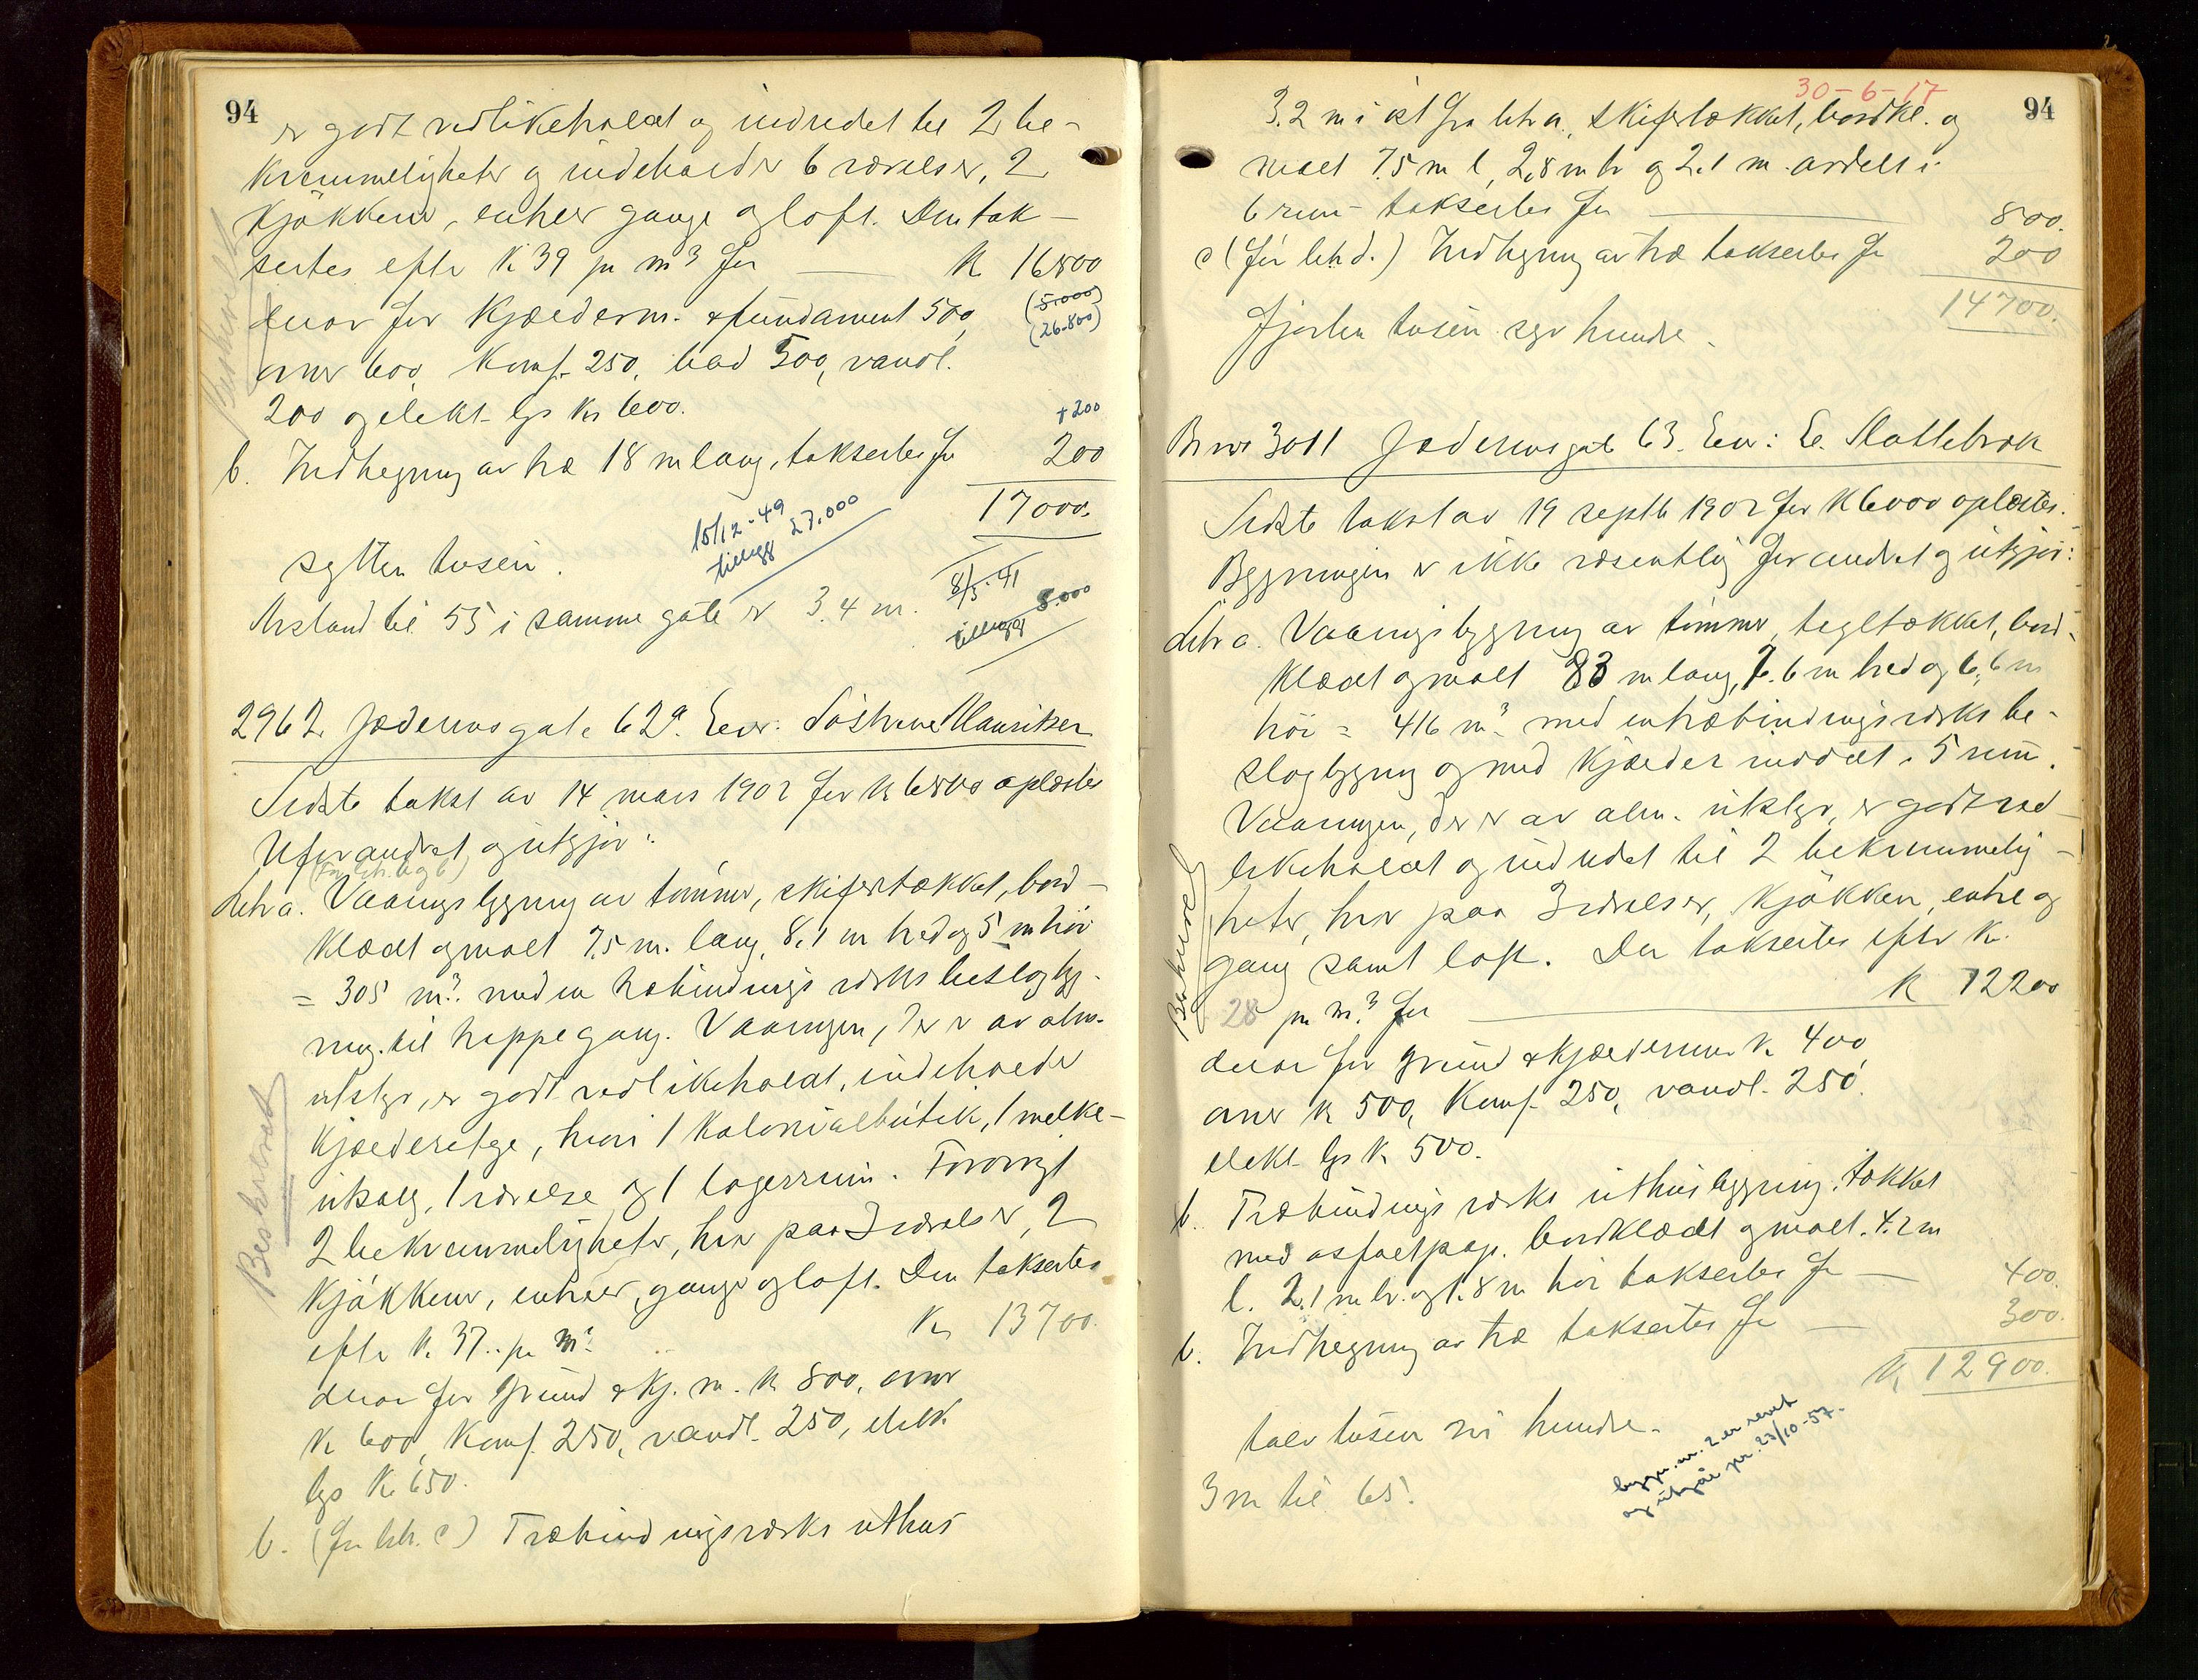 94
er godt vedlikeholdt og indredet til 2 be-
kvemmeligheter og indeholder 6 værelser, 2
kjøkkener, entreer gange og loft. Den tak-
sertes efter k 39 pr m³ for k 16800
(5.000)
(26.800)
derav for kjælderm. & fundament 500,
ovner 600, komf. 250, bad 500, vandl.
200 og elekt. lys kr 600.
+200
b. Indhegning av træ 18 m lang, taksertes for 200
17000.
15/12-49
tillegg 27.000
sytten tusen.
8/5-41
tillegg 8.000
Avstand til 55 i samme gate er 3.4 m.
2962. Jædernsgate 62ª. Eier: Søstrene Mauritzen
Sidste takst av 14 mars 1902 for k 6800 oplæstes
Uforandret og utgjør:
(før litr. a og b)
Litr a. Vaaningsbygning av tømmer, skifertækket, bord-
klædt og malt 7.5 m. lang, 8.1 m bred og 5 m høi
= 305 m³. med en træbindings verks beslagbyg-
ning til trappegang. Vaaningen, der er av alm.
utstyr, er godt vedlikeholdt, indeholder
kjælderetge, hvori 1 kolonialbutik, 1 melke-
utsalg, 1 værelse og 1 lagerrum. Forøvrigt
2 bekvemmeligheter, hver paa 3 værelser, 2
kjøkkener, entreer, gange og loft. Den taksertes
efter k. 37.. pr m³ Kr 13700.
derav for grund & kj. m. k 800, ovner
k 600, komf. 250, vandl. 250, elekt.
lys k 650.
b. (før litr. c) Træbindingsverks uthus
Beskrevet
Beskrevet
30-6-17
94
3.2 m i øst fra litr a., skifertækket, bordkl. og
malt 7.5 m l, 2,8 m br og 2.1 m. avdelt i
6 rum - taksertes for 800.
c (før litr d.) Indhegning av træ taksertes for 200
14700.
fjorten tusen syv hundre.
Br nr 3011 Jædernsgate 63. Eier: E. Slattebræk
Sidste takst av 19 septb 1902 for k 6000 oplæstes.
Bygningen er ikke væsentlig forandret og utgjør:
Litr a. Vaaningsbygning av tømmer, tegltækket, bord-
klædt og malt 83 m lang, 7.6 m bred og 6.6 m
høi = 416 m³. med en træbindingsverks be-
slagbygning og med kjælder inddelt i 5 rum.
Vaaningen, der er av alm. utstyr, er godt ved-
likeholdt og indredet til 2 bekvemmelig-
heter, hver paa 3 værelser, kjøkken, entre og
gang samt loft. Den taksertes efter k.
28 pr m³ for k 12200
derav for grund & kjælderm. k 400,
ovner k 500, komf. 250, vandl. 250.
elekt. lys k 500.
b. Træbindings verks uthusbygning, tækket
med asfaltpap. bordklædt og malt. 4.2 m
l. 2.1 m br. og 1.8 m høi taksertes for 400.
b. Indhegning av træ taksertes for 300.
k 12900.
tolv tusen ni hundre.
3 m til 65.
bygn. nr. 2 er revet
og utgår pr. 23/10-57.
Beskrevet